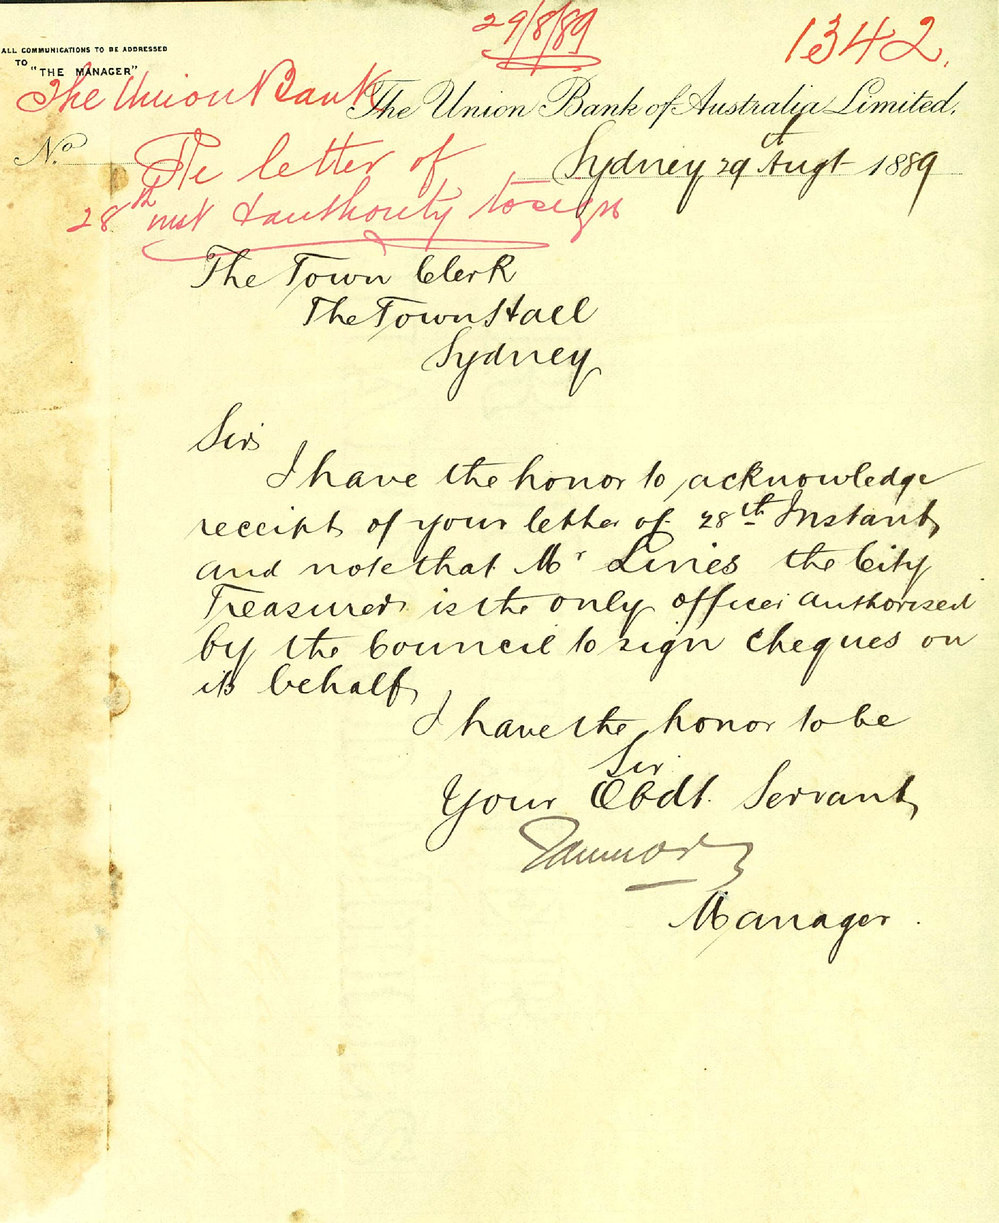 29/8/89
1342.
ALL COMMUNICATIONS TO BE ADDRESSED
TO "THE MANAGER"
The Union Bank
The Union Bank of Australia Limited.
No.
Sydney 29th Augt 1889
Re letter of
28th inst & authority to sign
The Town Clerk
The Town Hall
Sydney
Sir
I have the honor to acknowledge
receipt of your letter of 28th Instant
and note that Mr Lines the City
Treasurer is the only officer authorised
by the Council to sign cheques on
its behalf
I have the honor to be
Sir
Your Obdt. Servant
Manager.